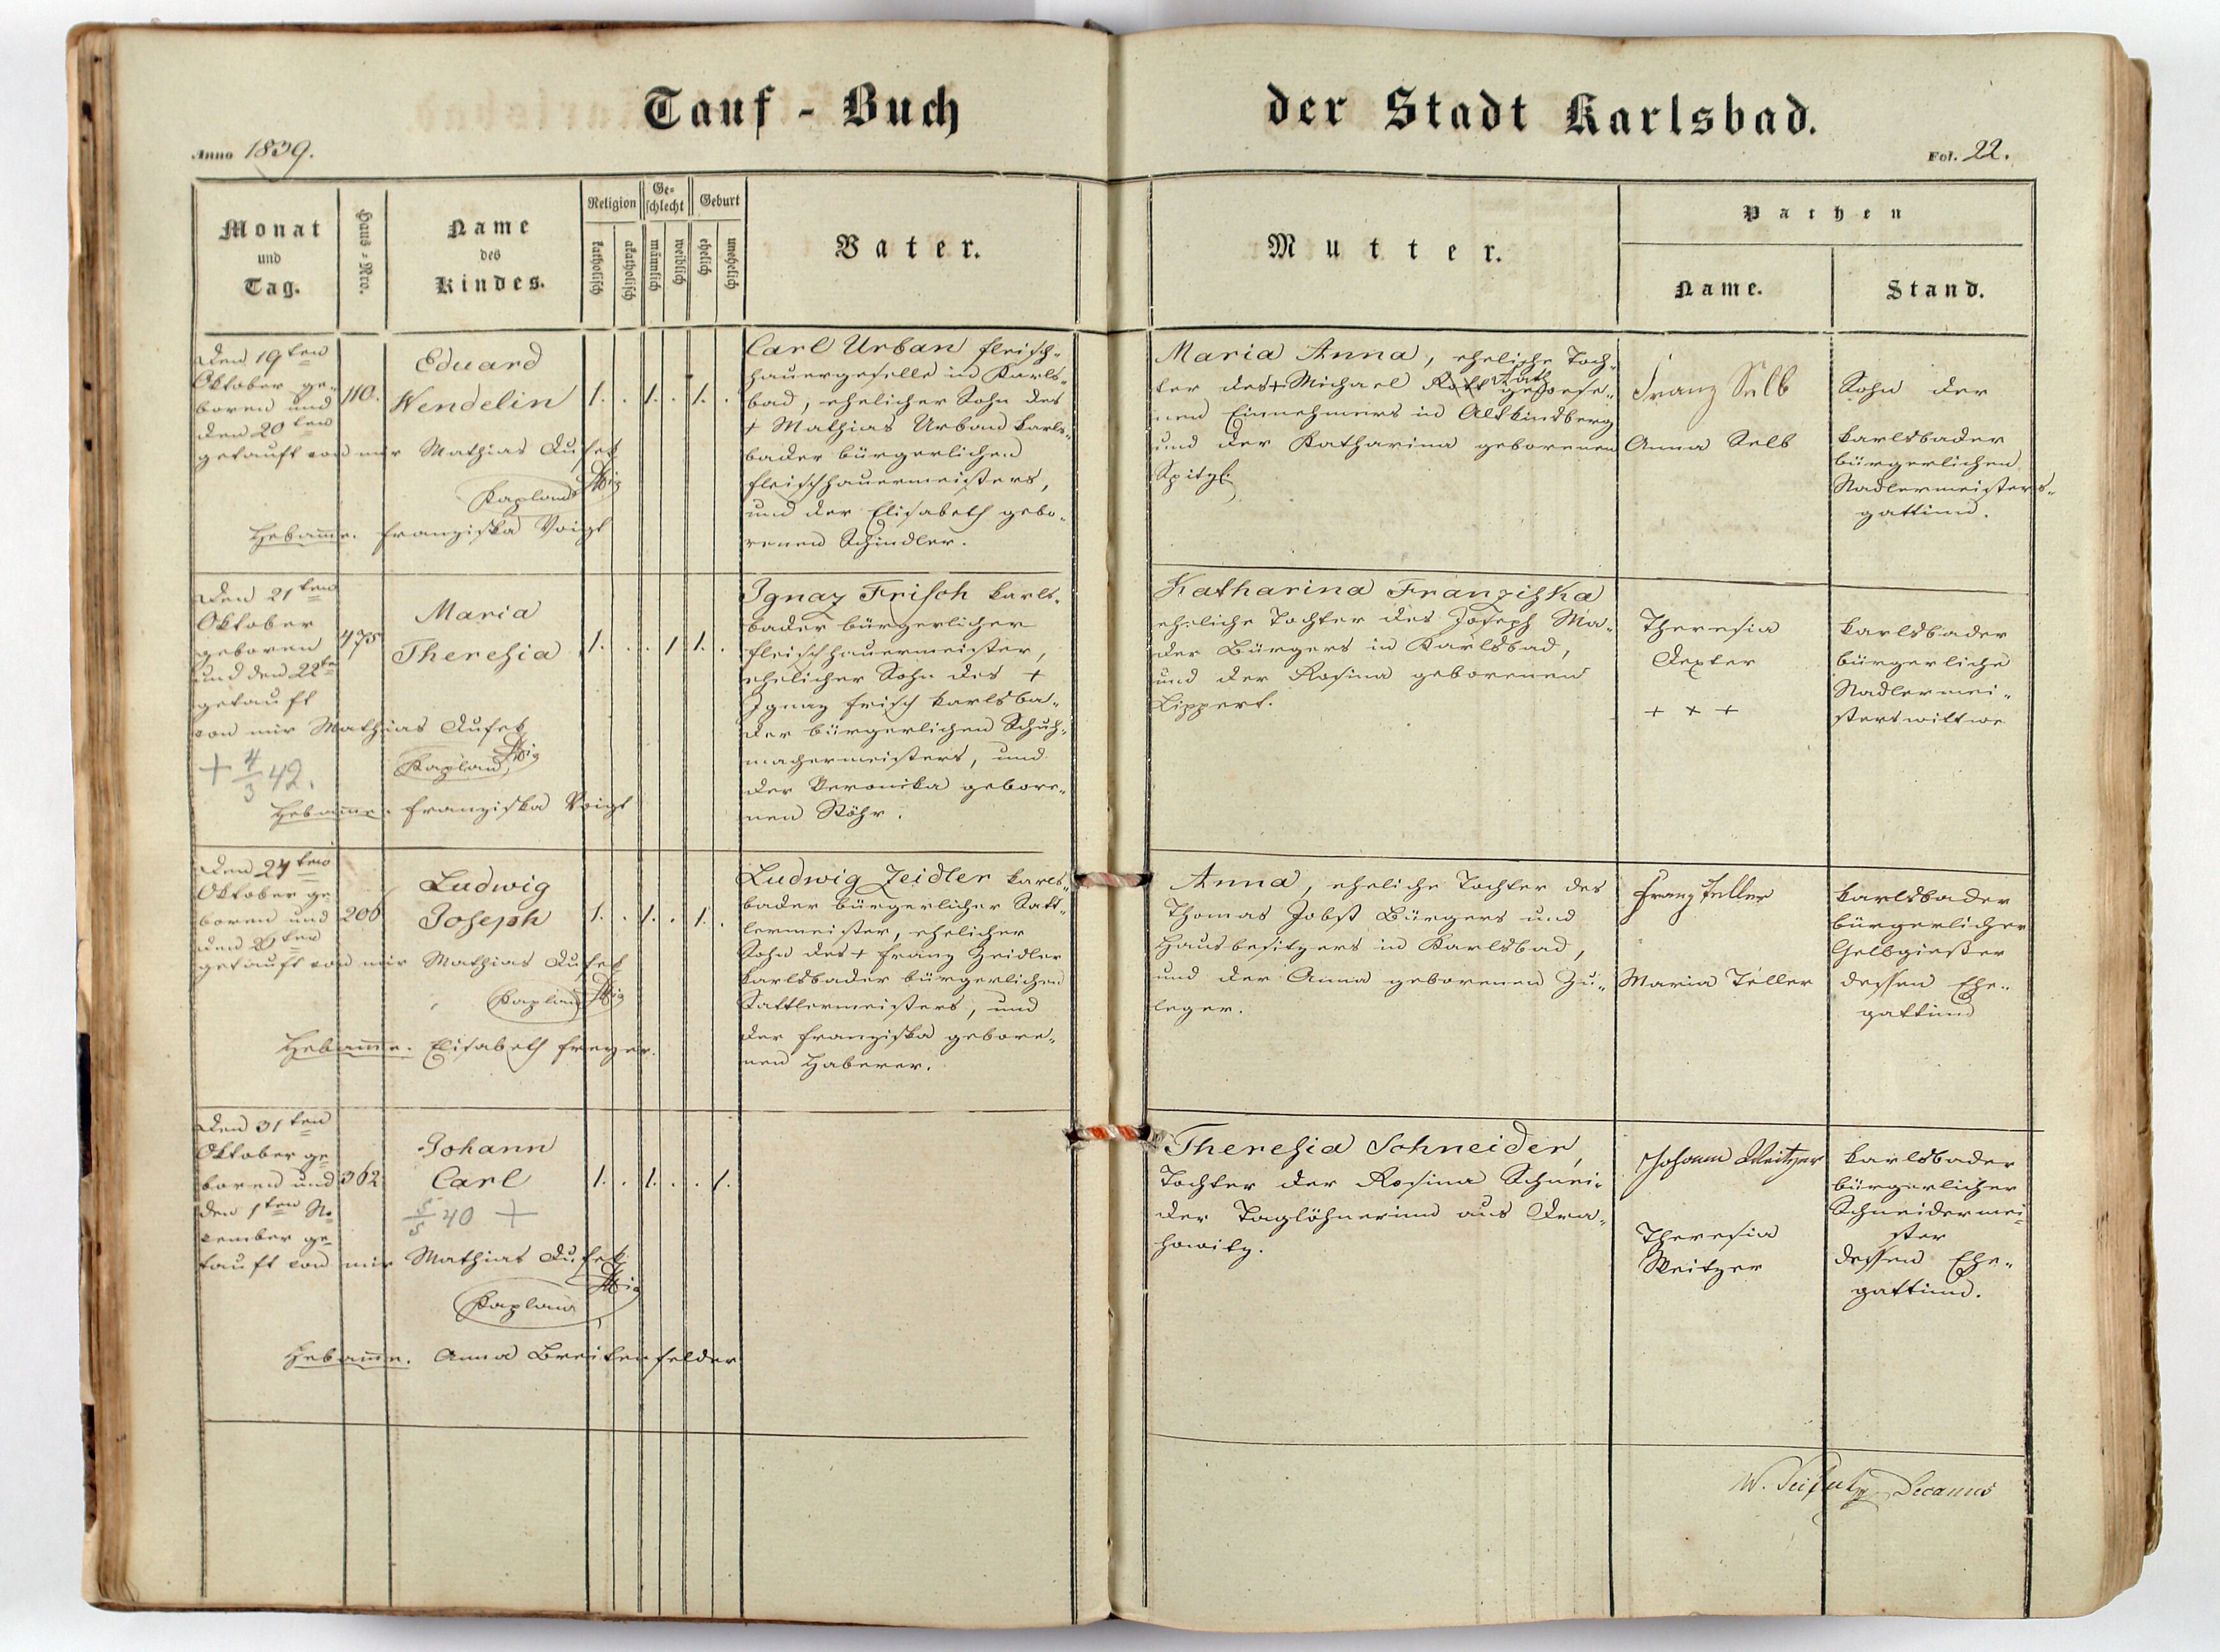 Tauf - Buch
der Stadt Karlsbad.
Anno 1839.
Fol. 22.
Monat
und
Tag.
Haus-Nro.
Name
des
Kindes.
Religion
katholisch
akatholisch
Ge-
schlecht
männlich
weiblich
Geburt
ehelich
unehelich
Vater.
Mutter.
Pathen
Name.
Stand.
Den 19ten
Oktober ge-
boren und
den 20ten
getauft von mir Mathias
Kaplan
Hebamme. Franziska Voigt
110.
Eduard
Wendelin
1. . 1. . 1. .
Carl Urban Fleisch-
hauergeselle in Karls-
bad, ehelicher Sohn des
+ Mathias Urban Karls-
bader bürgerlichen
Fleischhauermeisters,
und der Elisabeth gebo-
renen Schindler.
Maria Anna, eheliche Toch-
ter des + Michael Roth gewese-
nen Einnehmers in Altkindsberg
und der Katharina geborenen
Spitzl.
Franz Selb
Anna Selb
Sohn der
Karlsbader
bürgerlichen
Nadlermeisters-
gattinn.
Den 21ten
Oktober
geboren
und den 22ten
getauft
von mir Mathias
Kaplan
+ 4/3 42.
Hebamme. Franziska Voigt
475
Maria
Theresia
1. . . 1 1. .
Ignaz Frisch Karls-
bader bürgerlicher
Fleischhauermeister,
ehelicher Sohn des +
Ignaz Frisch Karlsba-
der bürgerlichen Schuh-
machermeisters, und
der Veronika gebore-
nen Stöhr.
Katharina Franziska
eheliche Tochter des Joseph Ma-
der Bürgers in Karlsbad,
und der Rosina geborenen
Lippert.
Theresia
Dexter
+ + +
Karlsbader
bürgerliche
Nadlermei-
sterswittwe
Den 24ten
Oktober ge-
boren und
den
getauft von mir Mathias
Kaplan
Hebamme. Elisabeth Freyer.
206
Ludwig
Joseph
1. . 1. . 1. .
Ludwig Zeidler Karls-
bader bürgerlicher Satt-
lermeister, ehelicher
Sohn des + Franz Zeidler
Karlsbader bürgerlichen
Sattlermeisters, und
der Franziska gebore-
nen Haberer.
Anna, eheliche Tochter des
Thomas Jobst Bürgers und
Hausbesitzers in Karlsbad,
und der Anna geborenen Zu-
leger.
Franz Teller
Maria Teller
Karlsbader
bürgerlicher
Gelbgießer
dessen Ehe-
gattinn
Den 31ten
Oktober ge-
boren und
den 1ten No-
vember ge-
tauft von mir Mathias
Kaplan
Hebamme. Anna Breitenfelder
362
Johann
Carl
5/5 40 +
1. . 1. . . 1.
Theresia Schneider,
Tochter der Rosina Schnei-
der Taglöhnerinn aus Dra-
howitz.
Johann Weitzer
Theresia
Weitzer
Karlsbader
bürgerlicher
Schneidermei-
ster
dessen Ehe-
gattinn.
Decanus